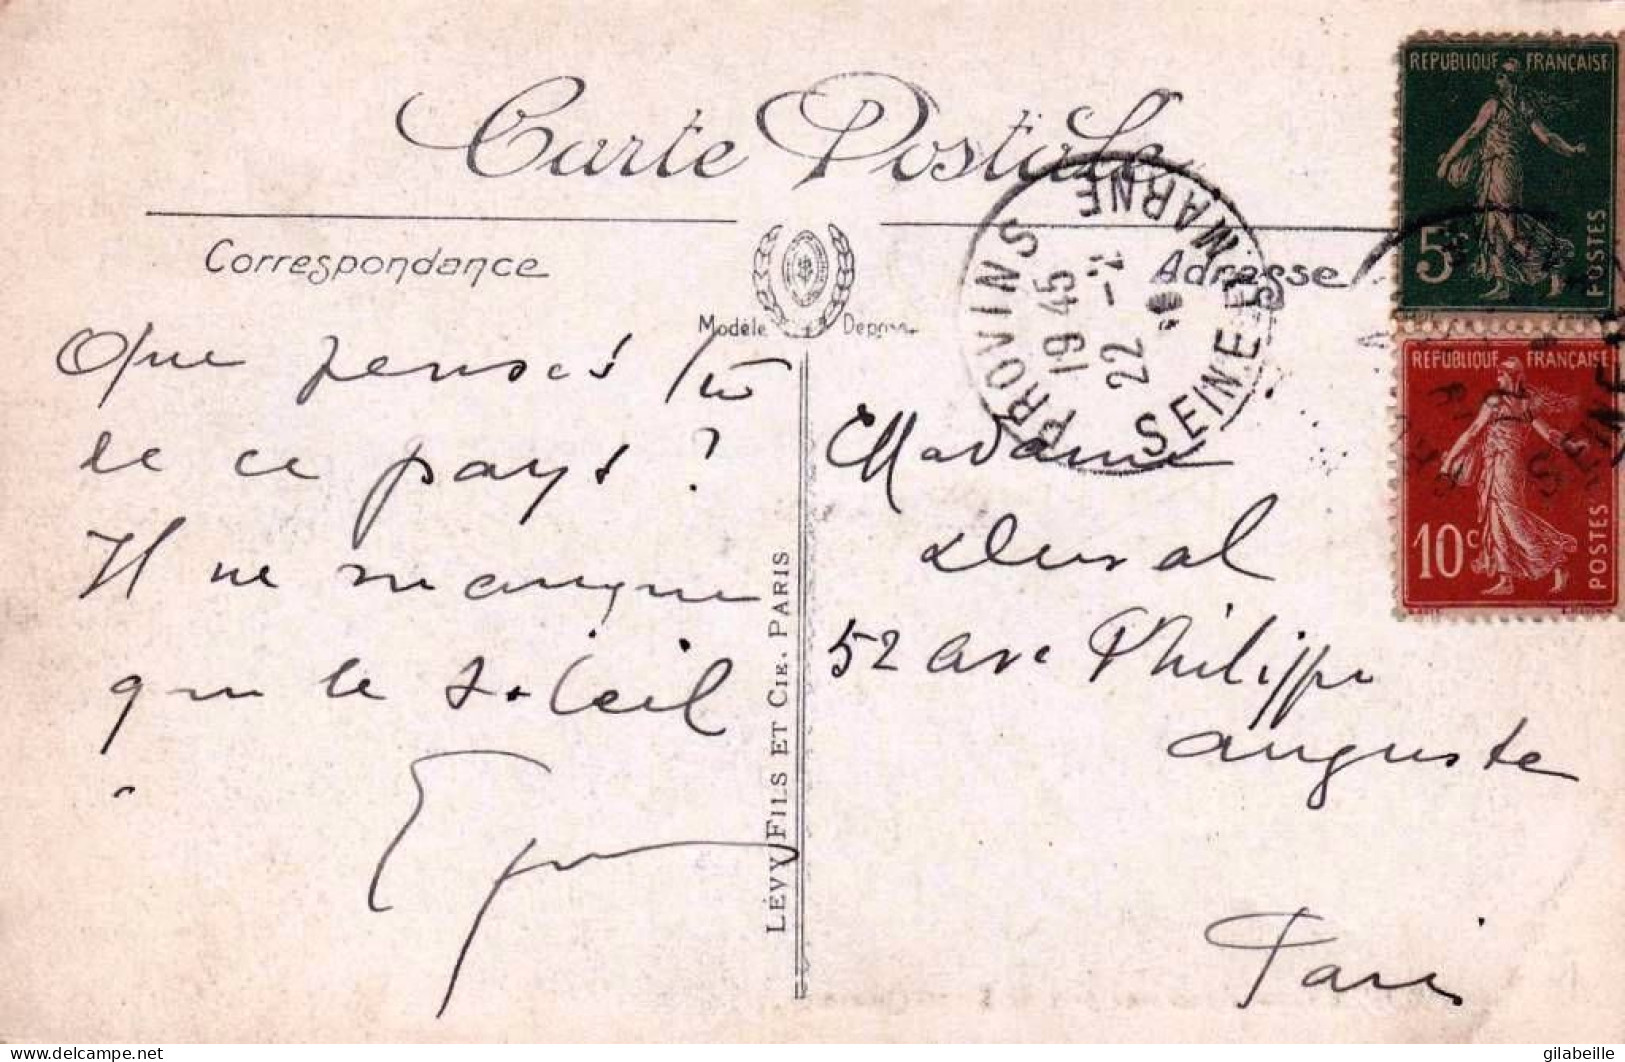 Carte Postale
Correspondance
Adresse
Modèle
PROVINS
19 45
22
SEINE ET MARNE
REPUBLIQUE FRANÇAISE
5c
POSTES
REPUBLIQUE FRANÇAISE
10c
POSTES
Que penses tu
de ce pays ?
Il ne manque
que le soleil
LÉVY FILS ET CIE. PARIS
Madame
Duval
52 ave Philippe
auguste
Paris
delcampe.net
gilabeille